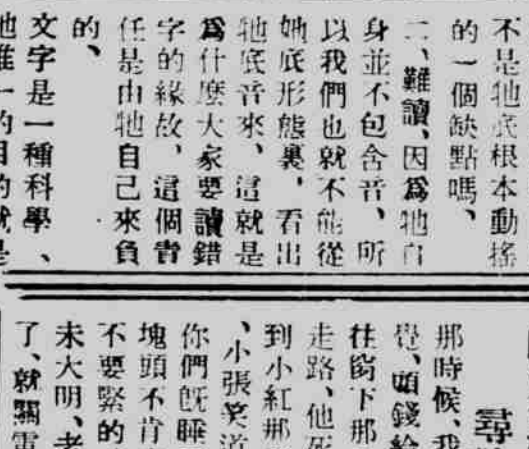 不是牠底根本動搖
的一個缺點嗎、
二、難讀、因爲牠自
身並不包含音、所
以我們也就不能從
她底形態裏、看出
牠底音來、這就是
爲什麼大家要讀錯
字的緣故、這個責
任是由牠自己來負
的、
文字是一種科學、
牠唯一的目的就是
尋
那時候、我
覺、頭錢給
往窗下那
走路、他死
到小紅那
、小張笑道
你們旣睡
塊頭不肯
不要緊的
未大明、老
了、就關電